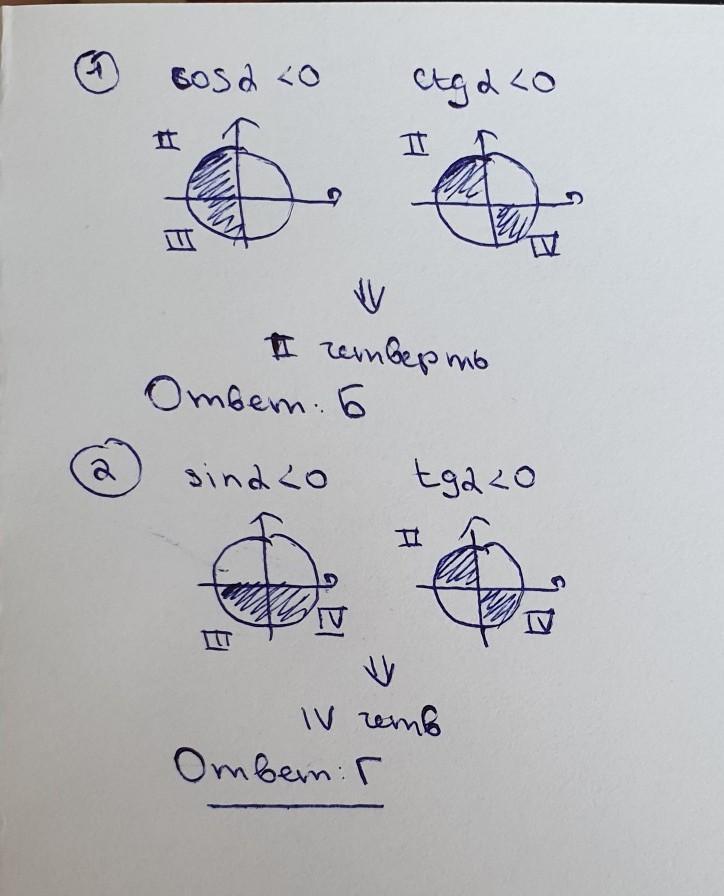 1 cosα <0 ctgα <0
II II
III IV
⇓
II четверть
Ответ: Б
2 sinα <0 tgα <0
II
III IV IV
⇓
IV четв
Ответ: Г